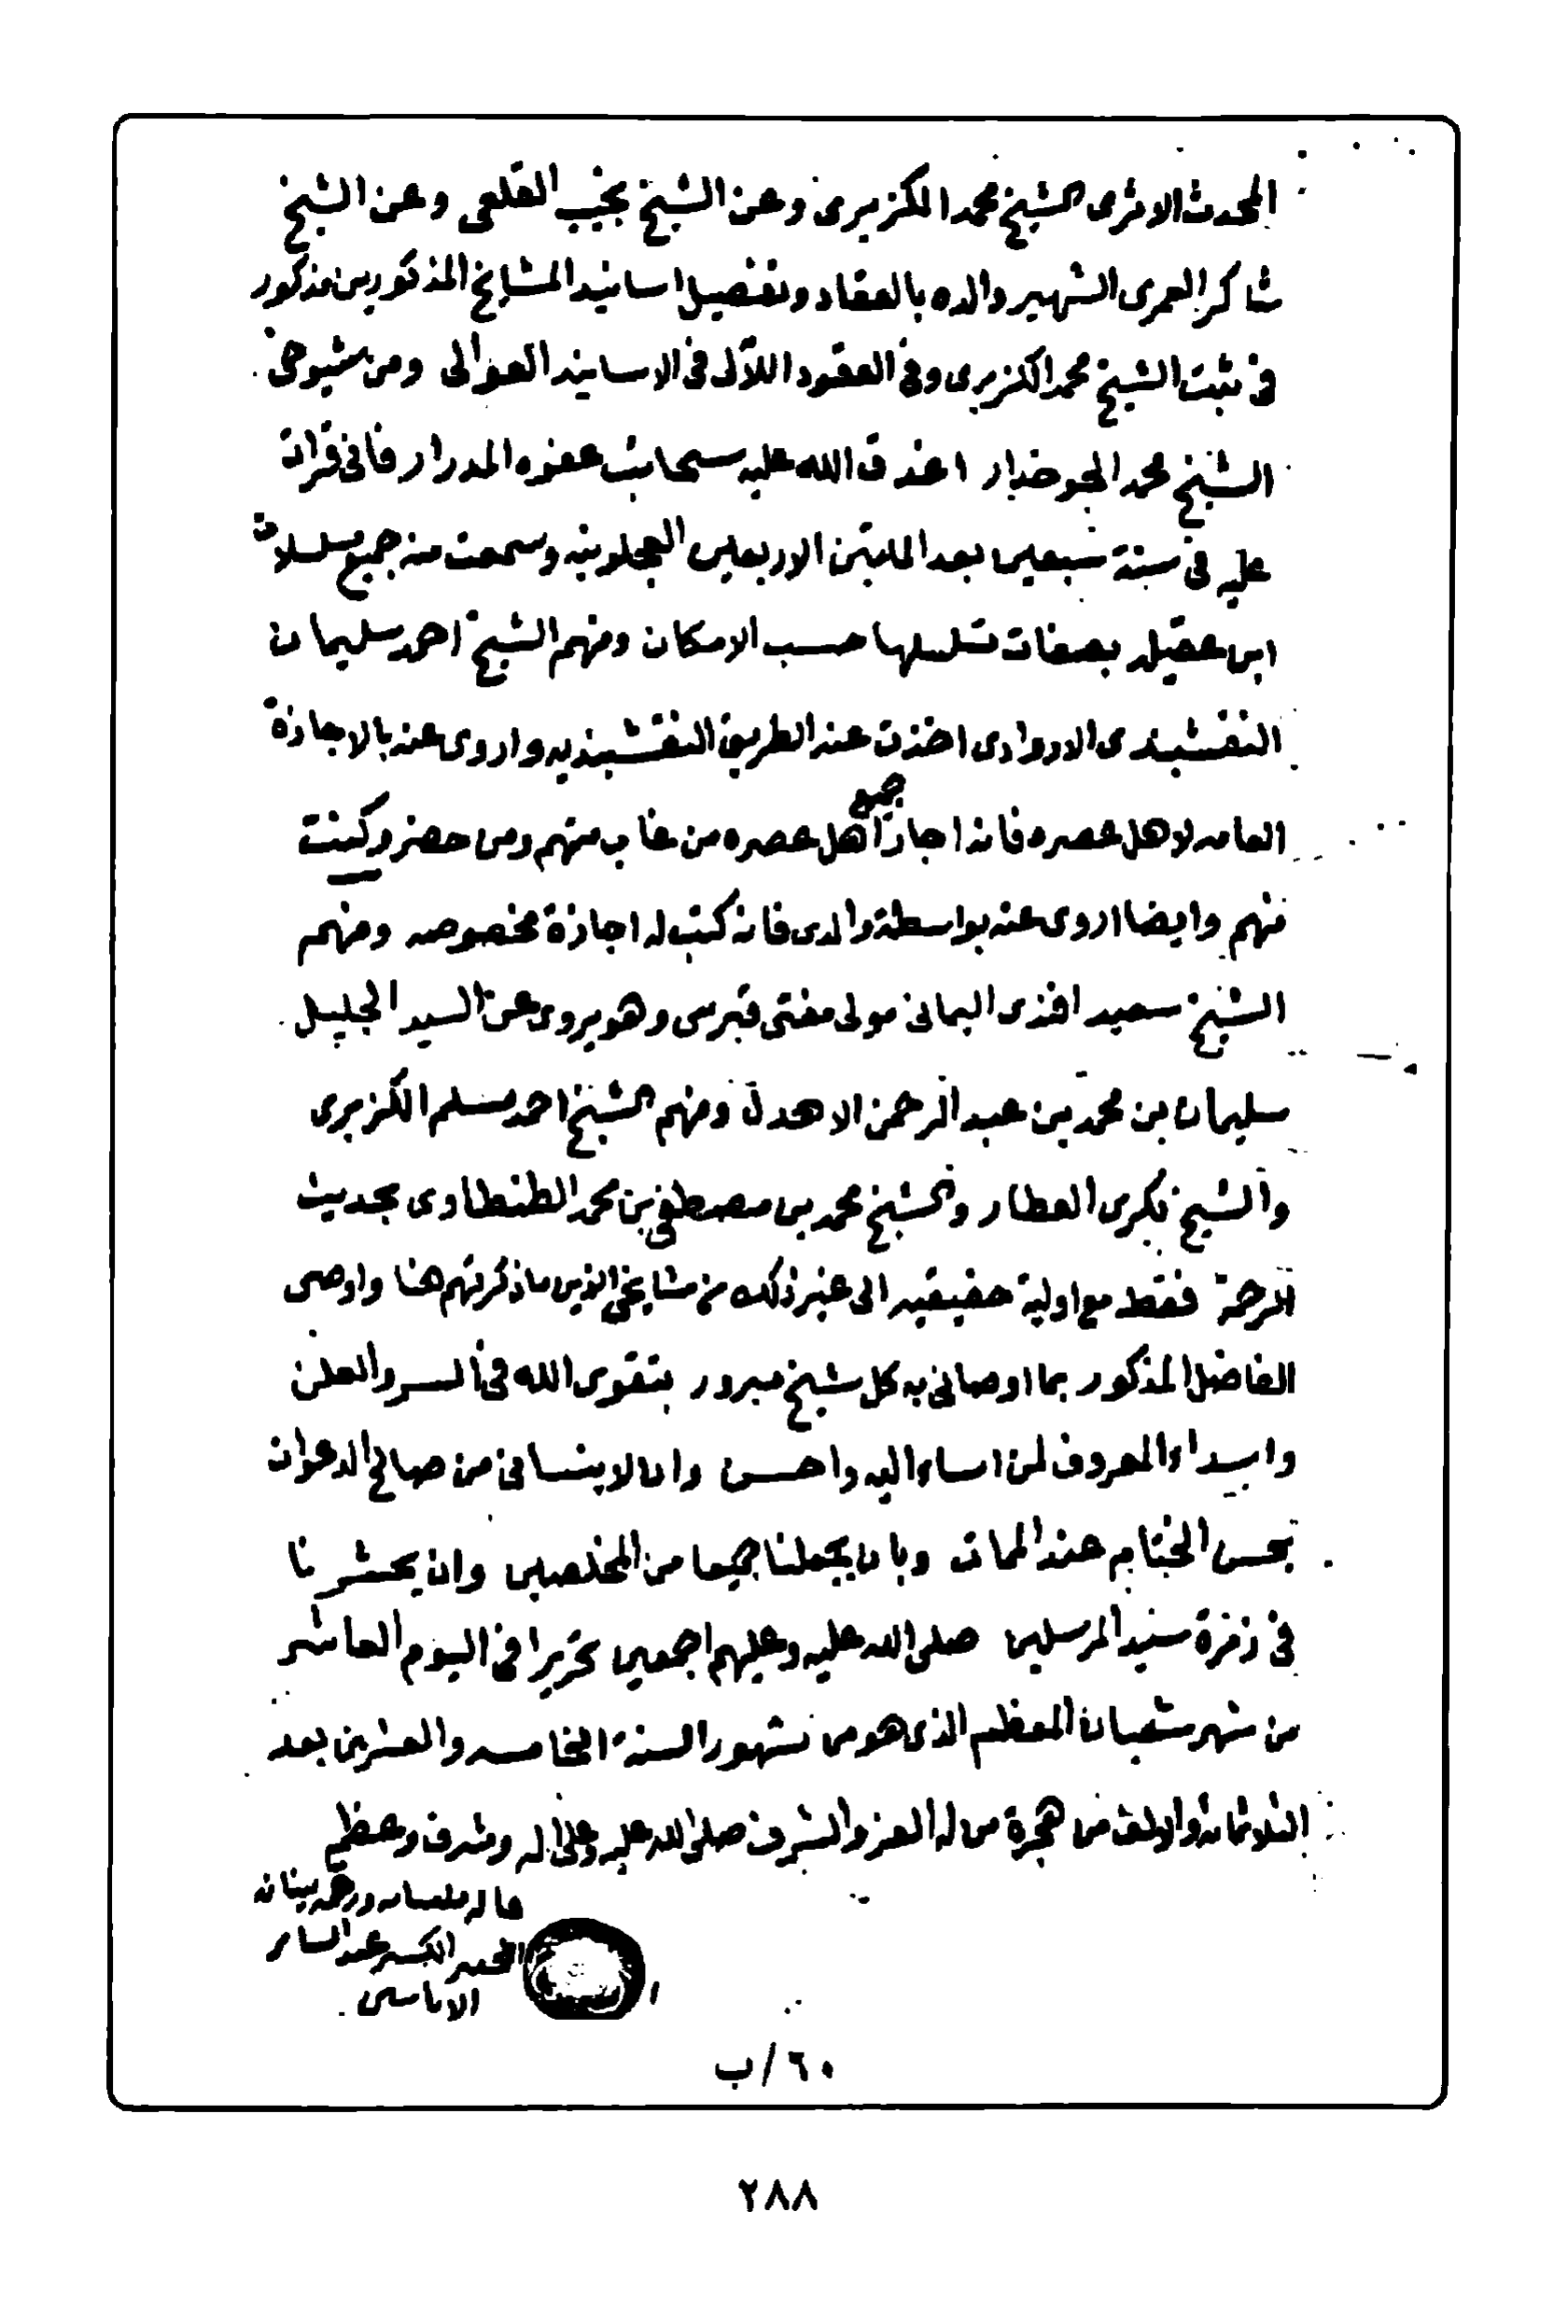 المحدث الاثرى الشيخ محمد الكزبرى وعن الشيخ نجيب القلعى وعن الشيخ
شاكر العمرى الشهير والده بالعقاد وتفصيل اسانيد المشايخ المذكورين مذكور
فى ثبت الشيخ محمد الكزبرى وفى العقود اللآلى فى الاسانيد العوالى ومن شيوخى
الشيخ محمد الجوخدار اغدق الله عليه سحائب عفوه المدرار فانى قرات
عليه فى سنة سبعين بعد المايتين الاربعين العجلونيه وسمعت منه جميع مسلسلات
ابن عقيله بصفات تسلسلها حسب الامكان ومنهم الشيخ احمد سليمان
النقشبندى الاروادى اخذت عنه الطريق النقشبنديه واروى عنه بالاجازة
العامه لاهل عصره فانه اجاز جميع اهل عصره من غاب منهم ومن حضر وكنت
منهم وايضا اروى عنه بواسطة والدى فانه كتب له اجازة مخصوصه ومنهم
الشيخ سعيد افندى اليمانى مولى مفتى قبرس وهو يروى عن السيد الجليل
سليمان بن محمد بن عبد الرحمن الاهدل ومنهم الشيخ احمد مسلم الكزبرى
والشيخ بكرى العطار والشيخ محمد بن مصطفى بن محمد الطنطاوى بحديث
الرحمة فقط مع اولية حقيقيه الى غير ذلك من مشايخى الذين ماذكرتهم هنا واوصى
الفاضل المذكور بما اوصانى به كل شيخ مبرور بتقوى الله فى السر والعلن
واسداء المعروف لمن اساء اليه واحسن وان لا ينسانى من صالح الدعوات
بحسن الختام عند الممات وبان يجعلنا جميعا من المخلصين وان يحشرنا
فى زمرة سيد المرسلين صلى الله عليه وعليهم اجمعين تحريرا فى اليوم العاشر
من شهر شعبان المعظم الذى هو من شهور السنة الخامسه والعشرين بعد
الثلاثمائة والالف من هجرة من له العز والشرف صلى الله عليه وعلى اله وشرف وعظم
قاله بلسانه ورقمه ببنانه
عبد الساتر
الاتاسى
٦٠/ب
٢٨٨